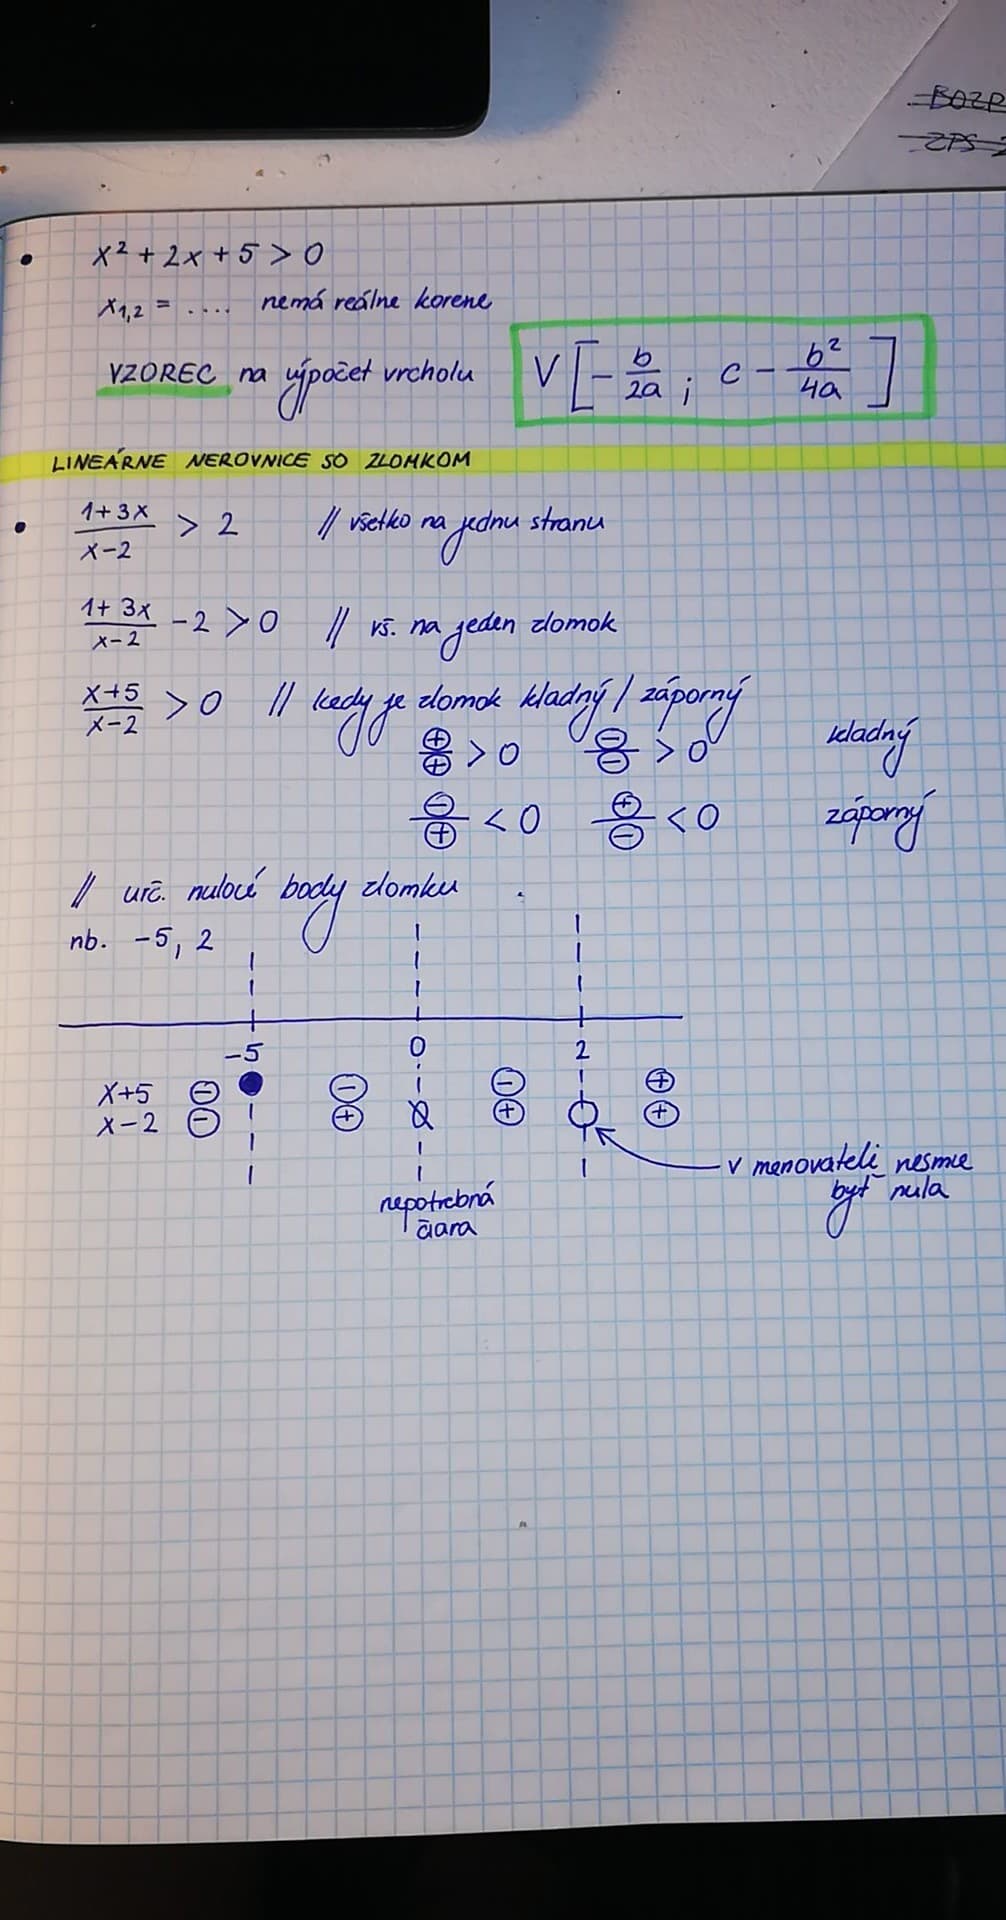 BOZP
ZPS
x² + 2x + 5 > 0
x₁,₂ = .... nemá reálne korene
VZOREC na výpočet vrcholu V[-b/2a ; c - b²/4a]
LINEÁRNE NEROVNICE SO ZLOMKOM
(1+3x)/(x-2) > 2 // všetko na jednu stranu
(1+3x)/(x-2) - 2 > 0 // vš. na jeden zlomok
(x+5)/(x-2) > 0 // kedy je zlomok kladný / záporný
⊕/⊕ > 0 ⊖/⊖ > 0 kladný
⊖/⊕ < 0 ⊕/⊖ < 0 záporný
// urč. nulové body zlomku
nb. -5, 2
-5 0 2
x+5 ⊖ ⊖ ⊖ ⊕
x-2 ⊖ ⊕ ⊕ ⊕
v menovateli nesmie
byť nula
nepotrebná
čiara